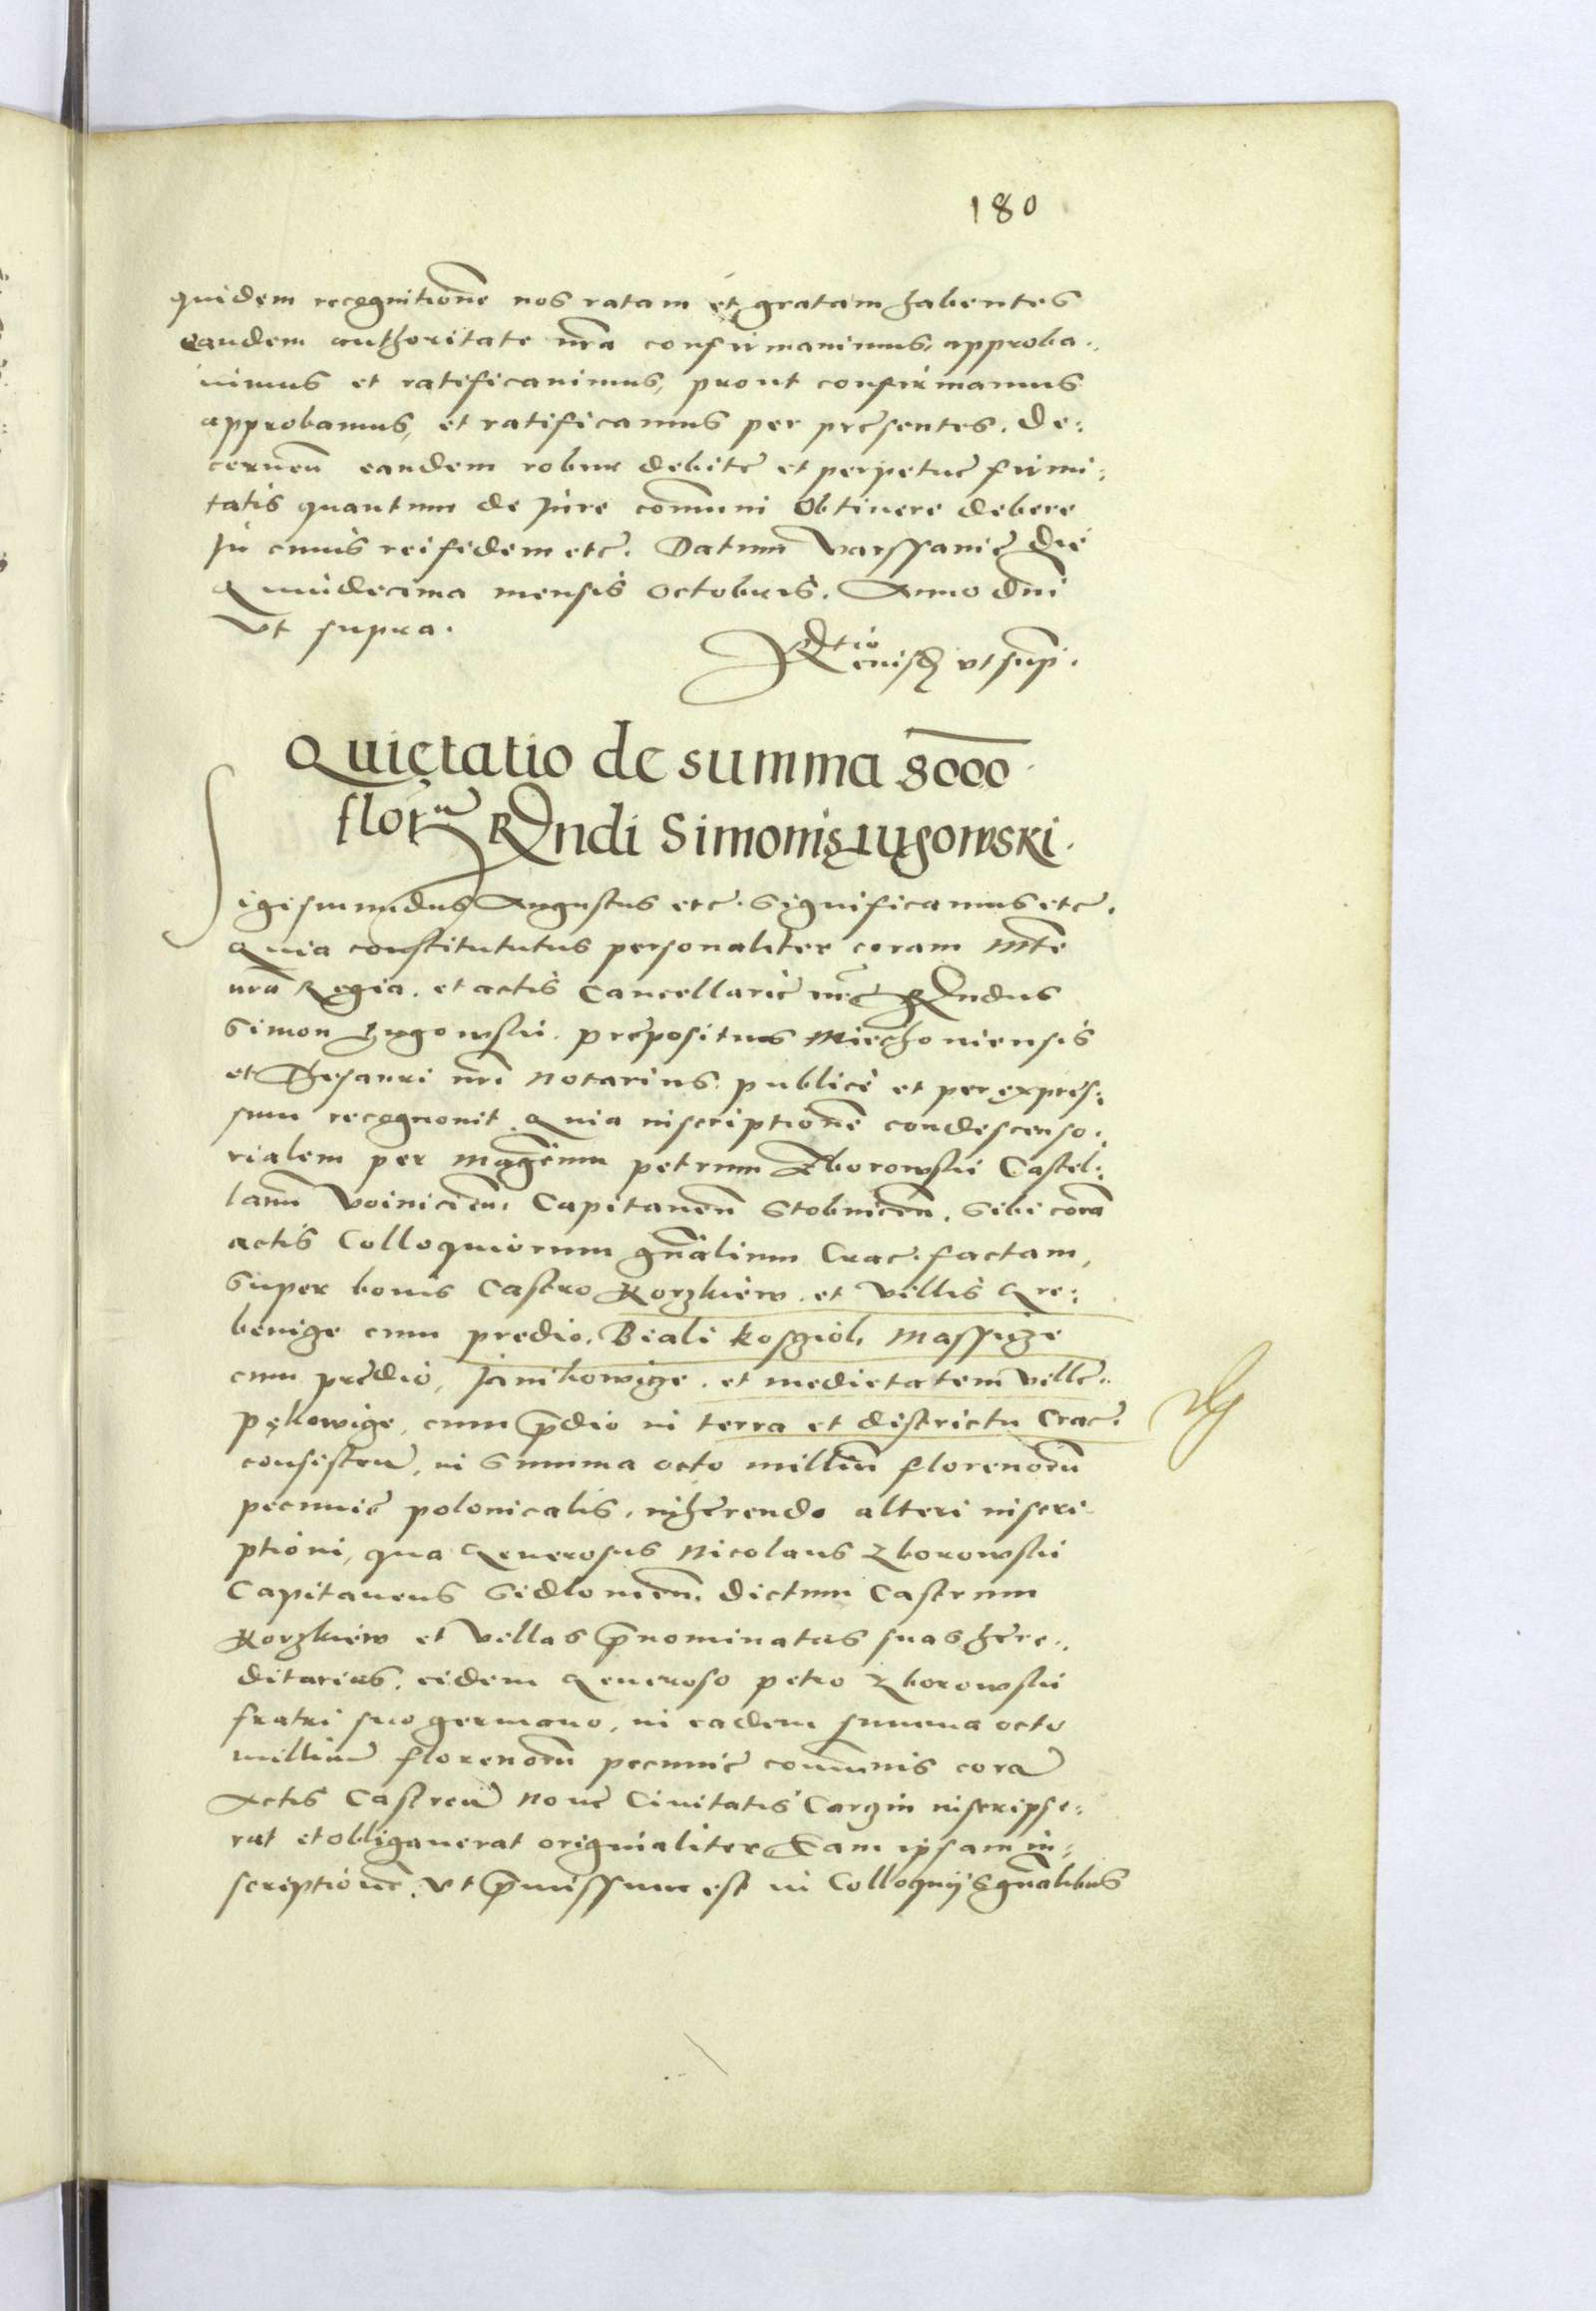 180
quidem recognitione nos ratam et gratam habentes
eandem authoritate nrã confirmauimus, approba:
uimus et ratificauimus, prout confirmamus
approbamus, et ratificamus per presentes. De:
cernen̄ eandem robur debitę et perpetuę firmi:
tatis quantum de Jure com̄uni obtinere debere
In cuius rei fidem etc. Datum Varssauię die
Quindecima mensis octobris. Anno dni
Vt supra.
Rtio eiusd vt sup.
Quietatio de summa 8000
florũ Rndi Simonis Lugowski.
Sigismundus Augustus etc. Significamus etc.
Quia constitututus personaliter coram Mte
nrã Regia. et actis Cancellarię nrę Rndus
Simon Lugowski. prępositus Miechouiensis
et Thesauri nri Notarius. publice et per expres:
sum recognouit. Quia inscriptionē condescenso:
rialem per Magcum petrum Zborowski Castel:
lanū Voinicien. Capitaneū Stobnicen. Sibi corã
actis Colloquiorum gn̄alium Crac. factam,
Super bonis Castro Korzkiew. et villis Gre:
benige cum predio. Biali kosziol, Massicze
cum predio, Janikowicze. et medietatem villę
pękowige, cum p̄dio in terra et districtu Crac.
consisten̄, in Summa octo milliū florenorū
pecunię polonicalis, inhęrendo alteri inscri
ptioni, qua Generosus Nicolaus Zborowski
Capitaneus Sidlouien̄. dictum Castrum
Korzkiew et villas p̄nominatas suas hęre:
ditarias. eidem Generoso petro Zborowski
fratri suo germano, in eadem summa octo
millium florenorū pecunię com̄unis corã
Actis Castren̄ Nouę Ciuitatis Corczin inscripse:
rat et obligauerat originaliter Eam ipsam in:
scriptionē. Vt p̄missum est in Colloquijs gn̄alibus